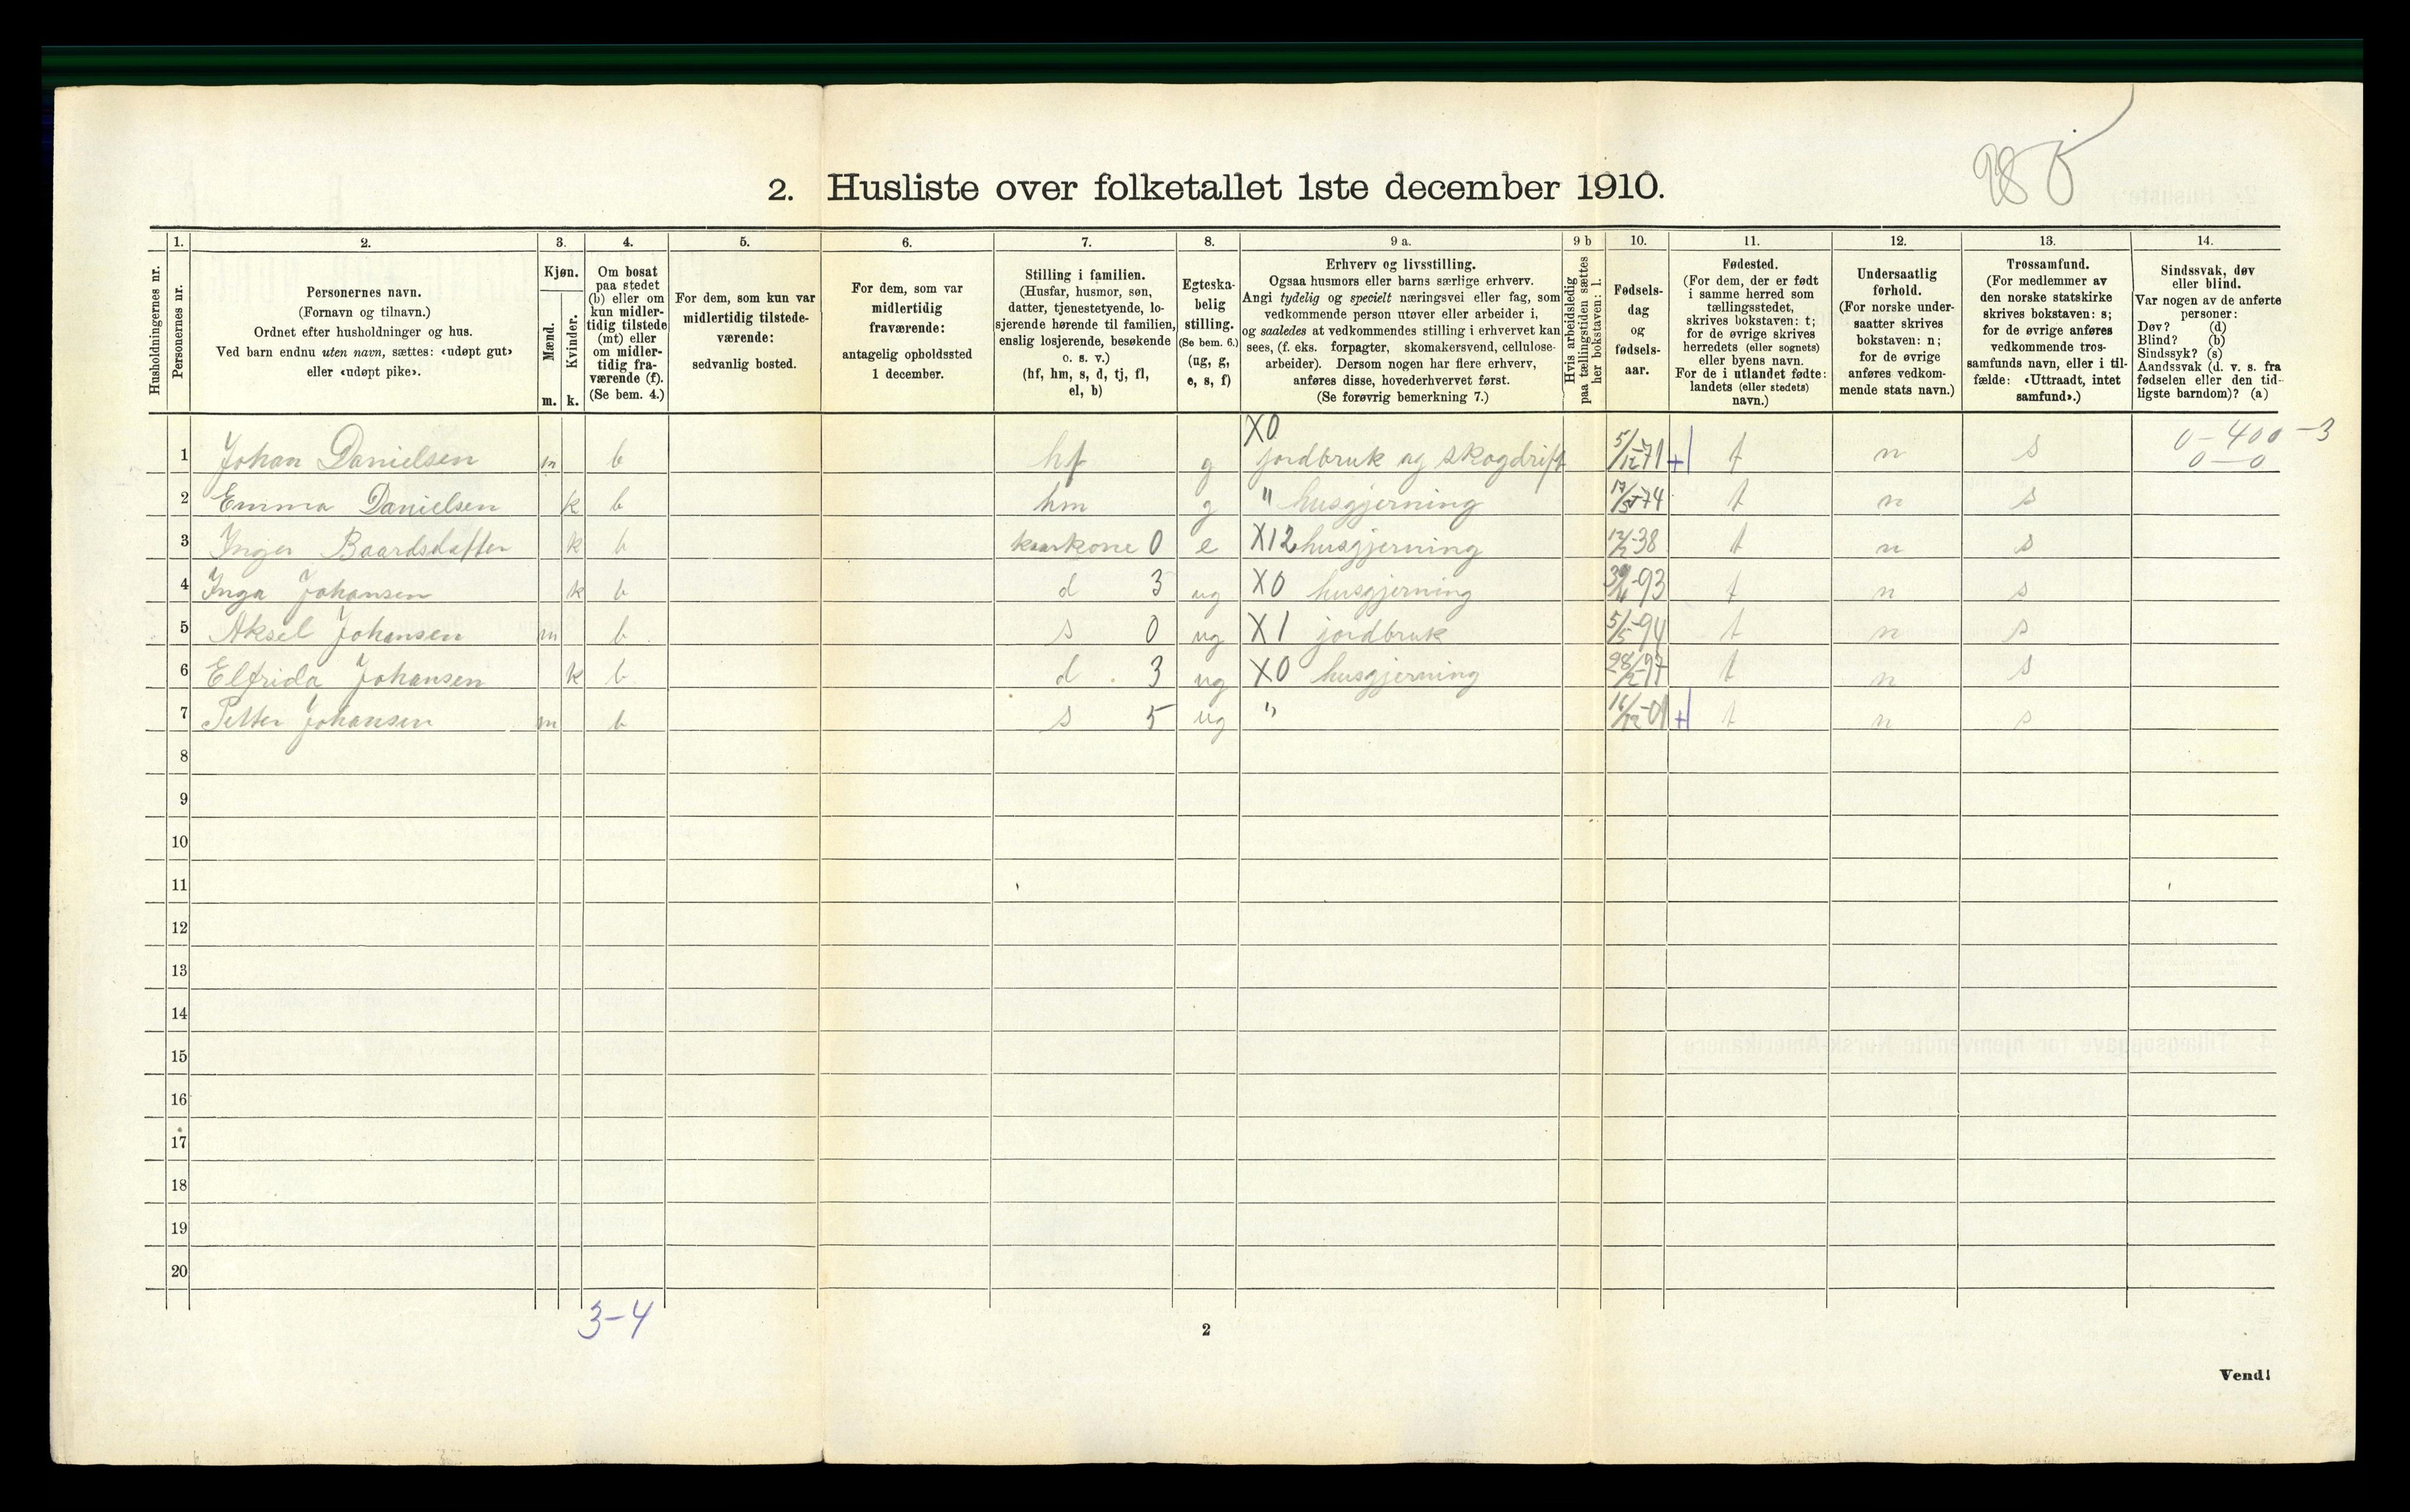 285
2. Husliste over folketallet 1ste december 1910.
Husholdningernes nr.
1. Personernes nr.
2. Personernes navn.
(Fornavn og tilnavn.)
Ordnet efter husholdninger og hus.
Ved barn endnu uten navn, sættes: «udøpt gut»
eller «udøpt pike».
3. Kjøn.
Mænd. m.
Kvinder. k.
4. Om bosat
paa stedet
(b) eller om
kun midler-
tidig tilstede
(mt) eller
om midler-
tidig fra-
værende (f).
(Se bem. 4.)
5. For dem, som kun var
midlertidig tilstede-
værende:
sedvanlig bosted.
6. For dem, som var
midlertidig
fraværende:
antagelig opholdssted
1 december.
7. Stilling i familien.
(Husfar, husmor, søn,
datter, tjenestetyende, lo-
sjerende hørende til familien,
enslig losjerende, besøkende
o. s. v.)
(hf, hm, s, d, tj, fl,
el, b)
8. Egteska-
belig
stilling.
(Se bem. 6.)
(ug, g,
e, s, f)
9 a. Erhverv og livsstilling.
Ogsaa husmors eller barns særlige erhverv.
Angi tydelig og specielt næringsvei eller fag, som
vedkommende person utøver eller arbeider i,
og saaledes at vedkommendes stilling i erhvervet kan
sees, (f. eks. forpagter, skomakersvend, cellulose-
arbeider). Dersom nogen har flere erhverv,
anføres disse, hovederhvervet først.
(Se forøvrig bemerkning 7.)
9 b Hvis arbeidsledig
paa tællingstiden sættes
her bokstaven: l.
10. Fødsels-
dag
og
fødsels-
aar.
11. Fødested.
(For dem, der er født
i samme herred som
tællingsstedet,
skrives bokstaven: t;
for de øvrige skrives
herredets (eller sognets)
eller byens navn.
For de i utlandet fødte:
landets (eller stedets)
navn.)
12. Undersaatlig
forhold.
(For norske under-
saatter skrives
bokstaven: n;
for de øvrige
anføres vedkom-
mende stats navn.)
13. Trossamfund.
(For medlemmer av
den norske statskirke
skrives bokstaven: s;
for de øvrige anføres
vedkommende tros-
samfunds navn, eller i til-
fælde: «Uttraadt, intet
samfund».)
14. Sindssvak, døv
eller blind.
Var nogen av de anførte
personer:
Døv? (d)
Blind? (b)
Sindssyk? (s)
Aandssvak (d. v. s. fra
fødselen eller den tid-
ligste barndom)? (a)
1 Johan Danielsen m b hf g X0 jordbruk og skogdrift 5/12-71 + t n s 0-400-3
0-0
2 Emma Danielsen k b hm g " husgjerning t n s
3 Inger Baardsdatter k b kaarkone 0 e X12 husgjerning 12/2-38 t n s
4 Inga Johansen k b d 3 ug X0 husgjerning t n s
5 Aksel Johansen m b s 0 ug X1 jordbruk 5/5-94 t n s
6 Elfrida Johansen k b d 3 ug X0 husgjerning 28/12-97 t n s
7 Petter Johansen m b s 5 ug " 16/12-01 + t n s
8
9
10
11
12
13
14
15
16
17
18
19
20
3-4
2
Vend!